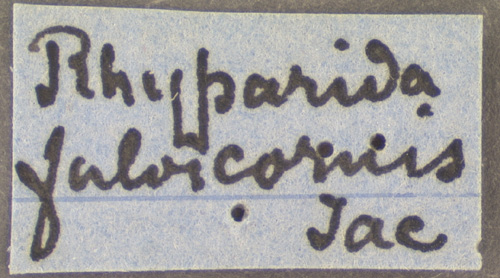 Rhyparida
fulvicornis
Jac